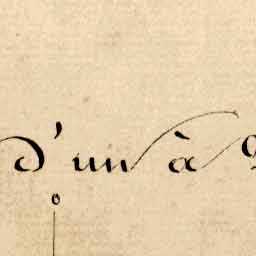 d'un à
o